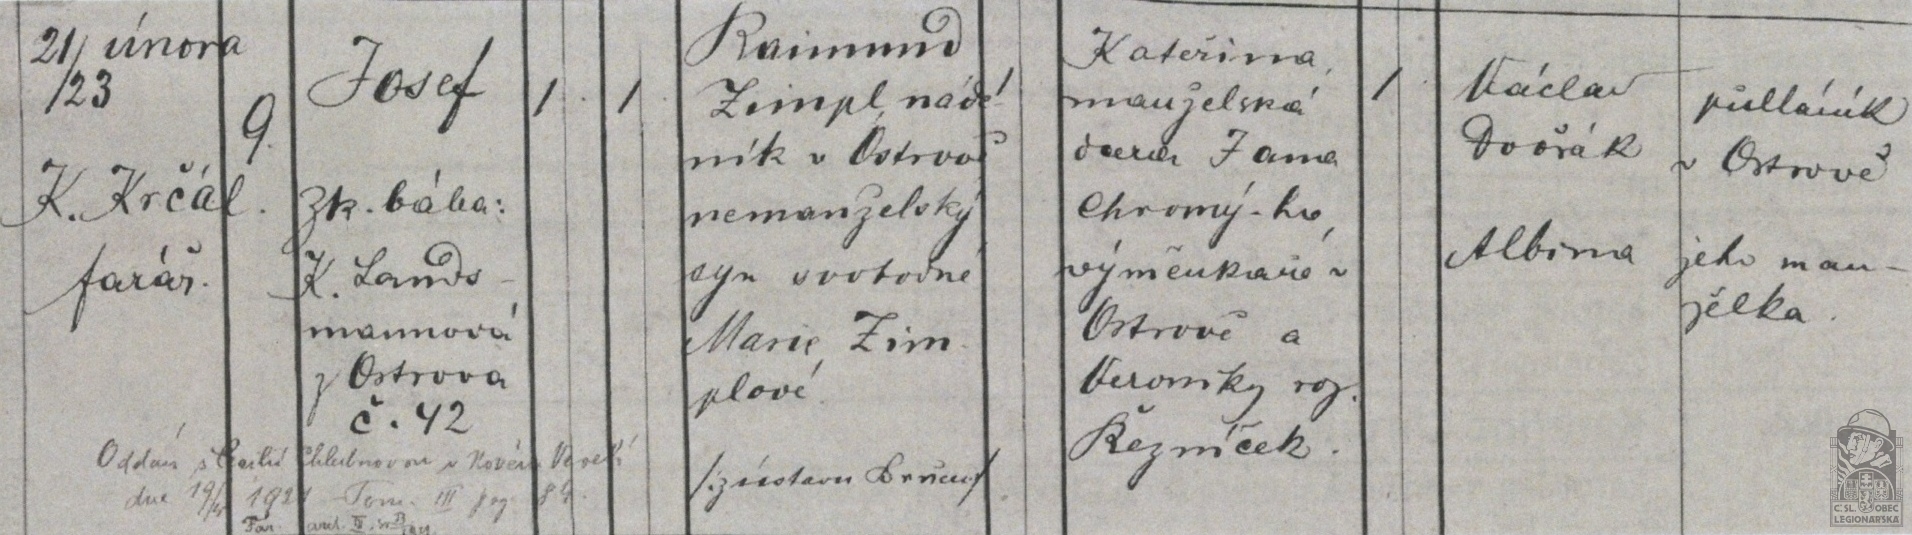 21/ února
/23
K. Krčál.
farář.
9.
Josef
zk. bába:
K. Lands-
mannová
z Ostrova
č. 42
1
1
Raimund
Zimpl, nádě-
ník v Ostrově
nemanželský
syn svobodné
Marie Zim-
plové.
Kateřina,
manželská
dcera Jana
Chromý-ho,
výměnkaře v
Ostrově a
Veroniky roz.
Řezníček.
1
Václav
Dvořák
Albina
půlláník
v Ostrově
jeho man-
želka.
Oddán s
dne 19/ 192 Tom. III pag.
C.SL. OBEC
LEGIONÁŘSKÁ